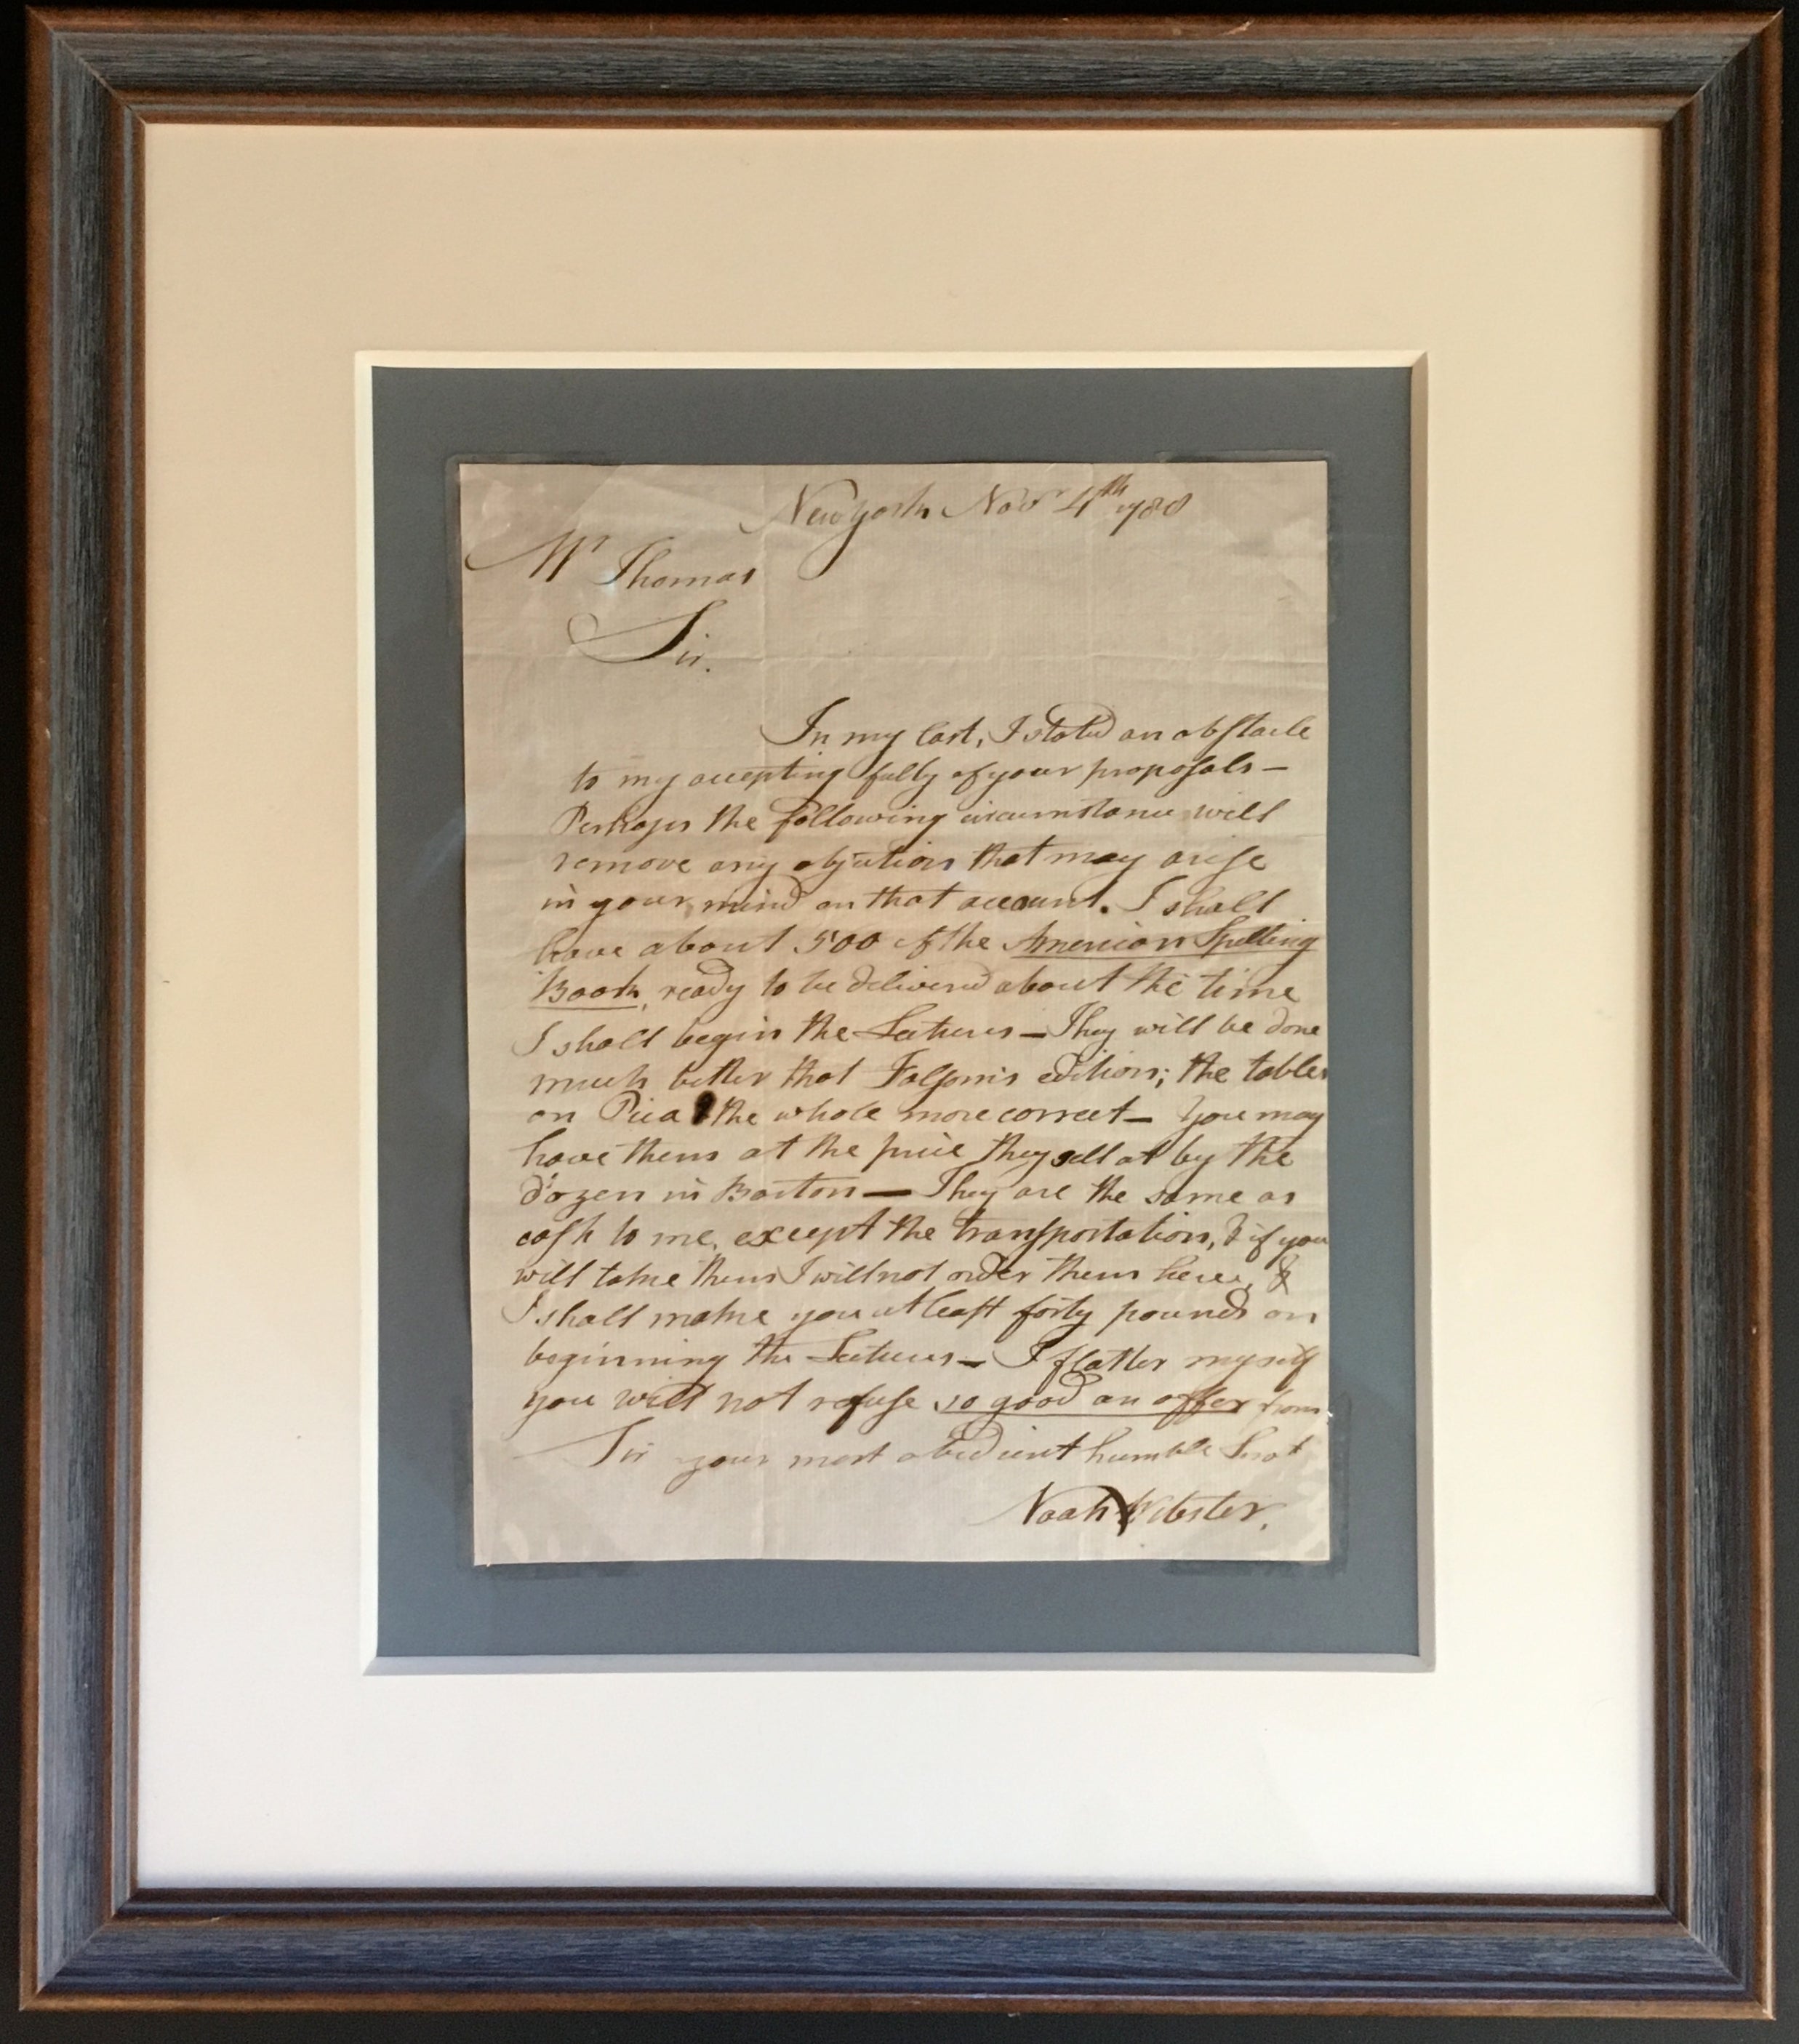 New York Nov 4th 1788
Mr Thomas
Sir.
In my last, I stated an obstacle
to my accepting fully of your proposals —
Perhaps the following circumstance will
remove any objection that may arise
in your mind on that account. I shall
have about 500 of the American Spelling
Book, ready to be delivered about the time
I shall begin the Lectures — They will be done
much better that Folsom's edition; the tables
on Pica & the whole more correct — You may
have them at the price they sell at by the
dozen in Boston — They are the same as
cash to me, except the transportation, & if you
will take them I will not order them here, &
I shall make you at least forty pounds on
beginning the Lectures — I flatter myself
you will not refuse so good an offer from
Sir your most obedient humble Servt
Noah Webster.